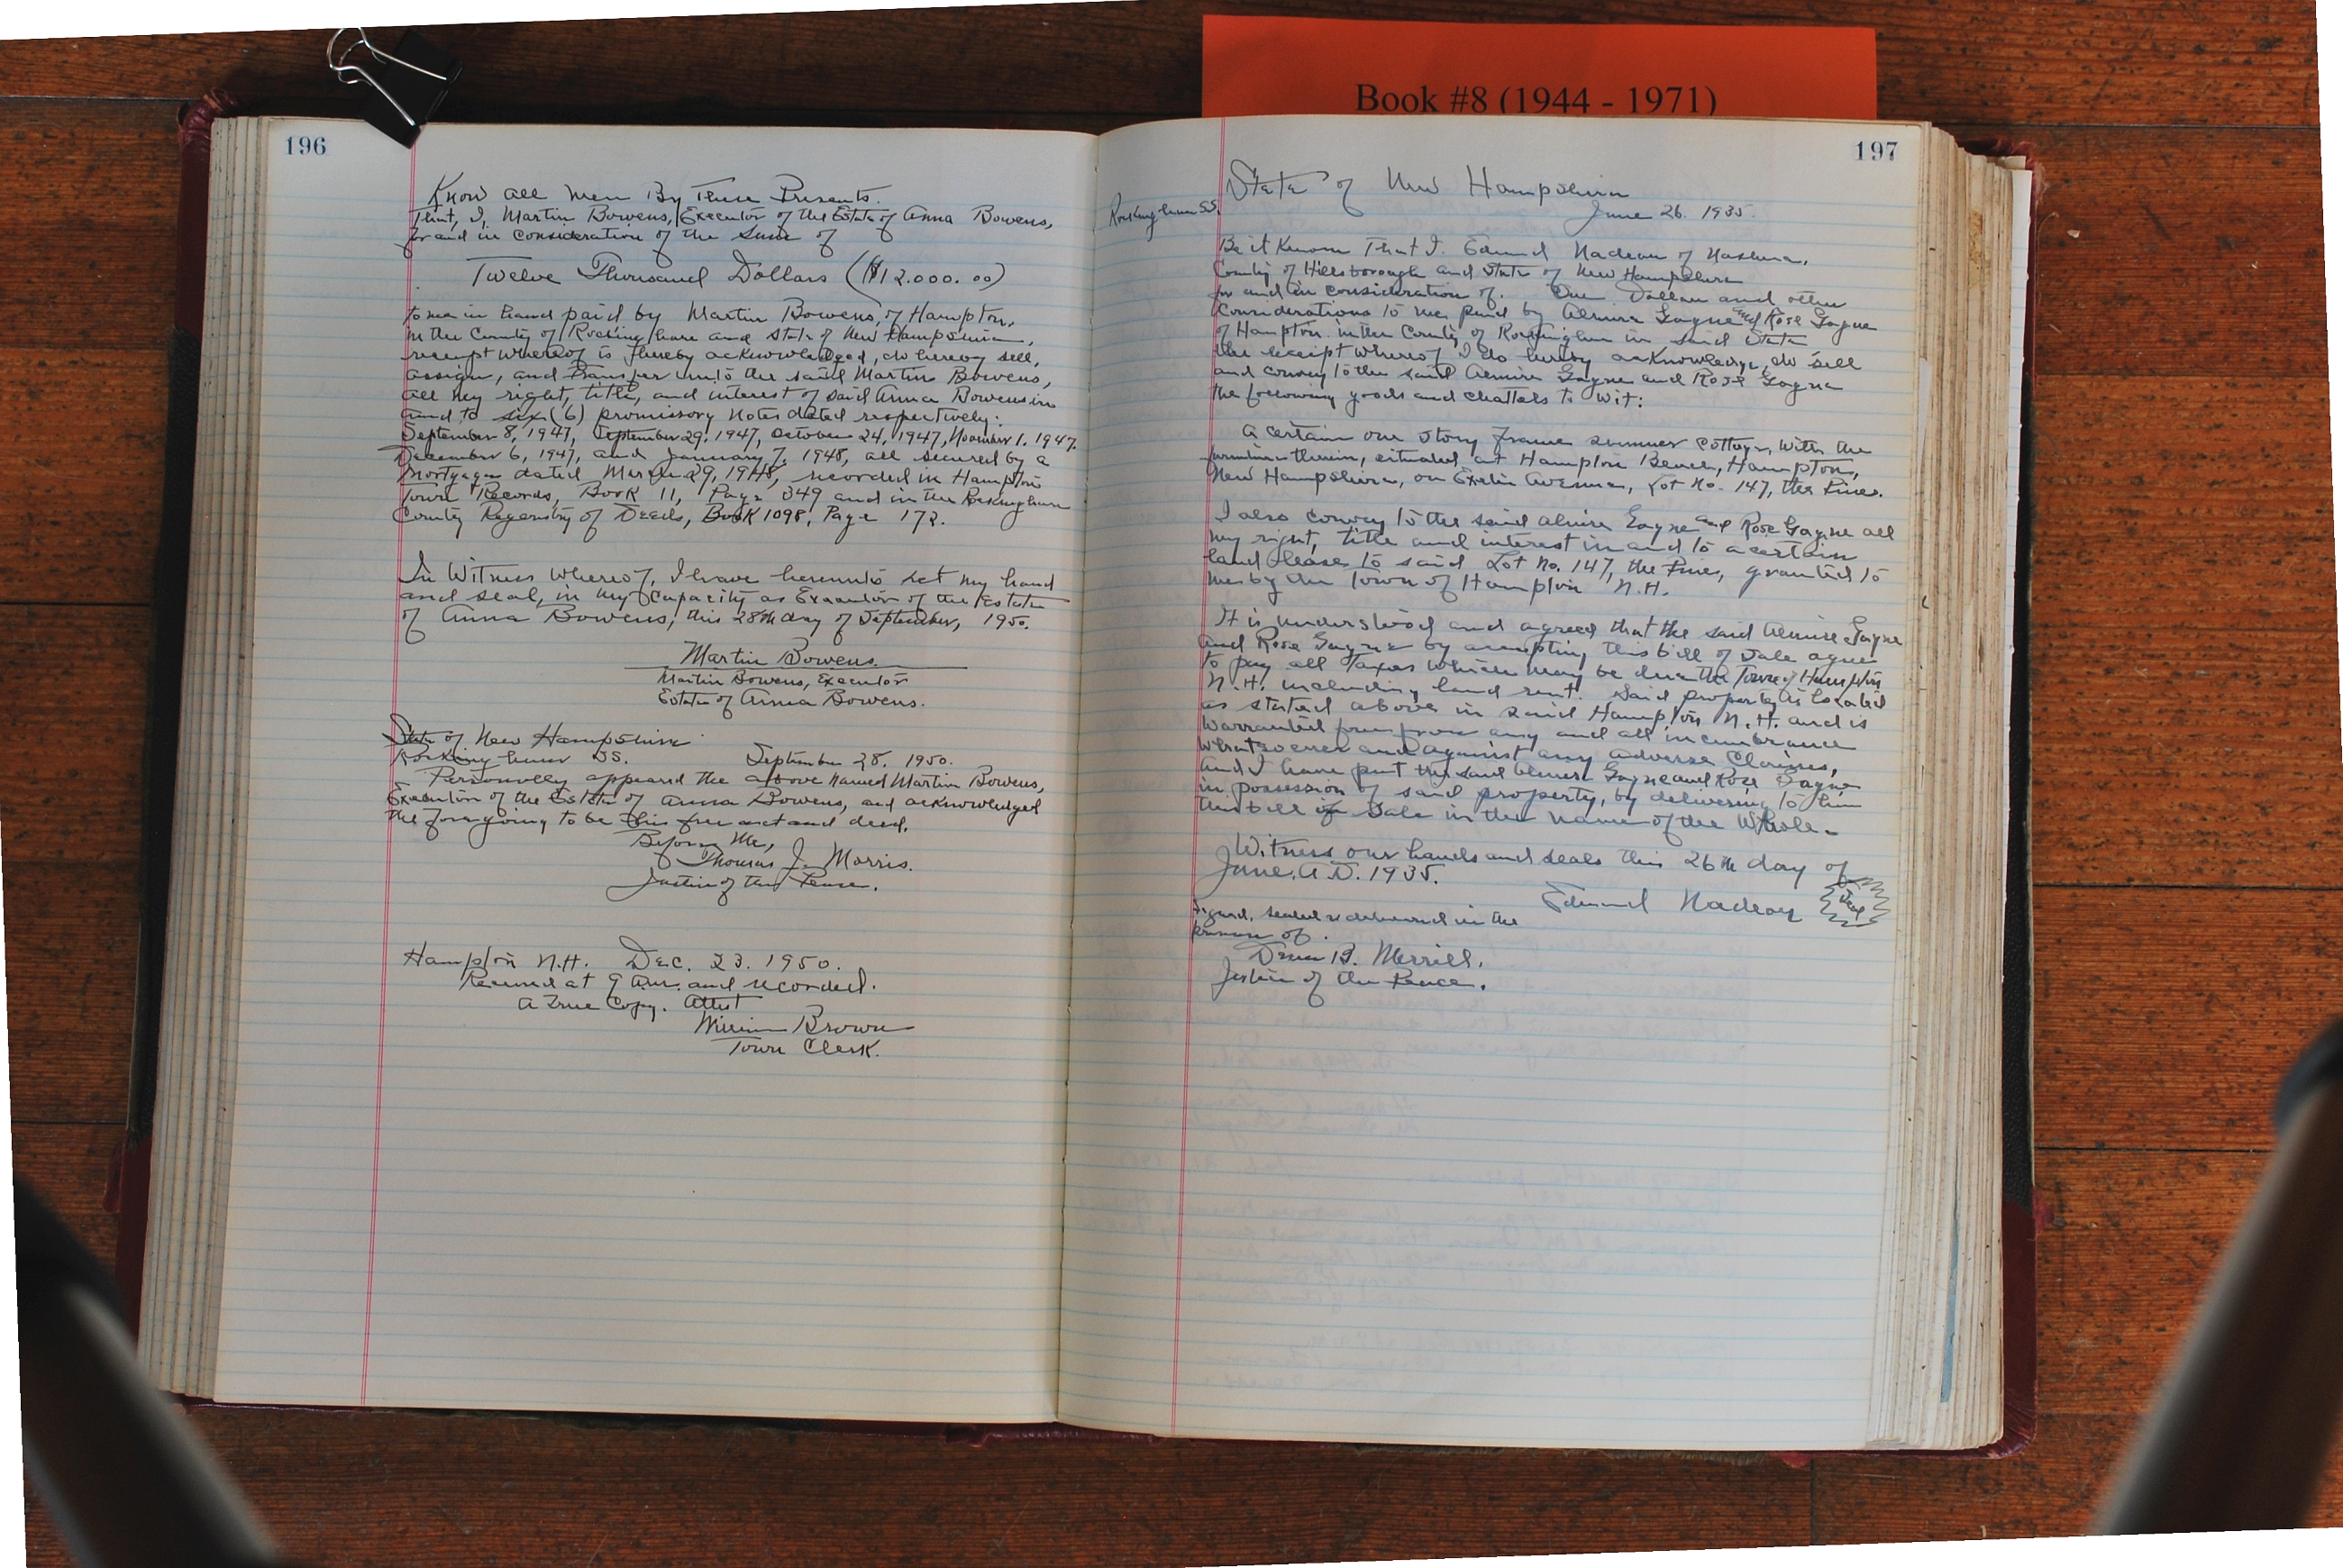 Book #8 (1944 - 1971)
196
Know all Men By These Presents.
That, I, Martin Bowens, Executor of the Estate of Anna Bowens,
for and in consideration of the sum of
Twelve Thousand Dollars ($12.000.00)
to me in hand paid by Martin Bowens, of Hampton,
in the County of Rockingham and State of New Hampshire,
receipt whereof is hereby acknowledged, do hereby sell,
assign, and transfer unto the said Martin Bowens,
all my right, title, and interest of said Anna Bowens in
and to six (6) promissory notes dated respectively:
September 8, 1947, September 29, 1947, October 24, 1947, November 1. 1947.
December 6, 1947, and January 7, 1948, all secured by a
mortgage dated March 29, 1948, recorded in Hampton
Town Records, Book 11, Page 349 and in the Rockingham
County Regenstry of Deeds, Book 1098, Page 172.
In Witness Whereof, I have hereunto set my hand
and seal, in my capacity as Executor of the Estate
of Anna Bowens, this 28th day of September, 1950.
Martin Bowens.
Martin Bowens, Executor
Estate of Anna Bowens.
State of New Hampshire
Rockingham SS. September 28. 1950.
Personally appeared the above named Martin Bowens,
Executor of the Estate of Anna Bowens, and acknowledged
the foregoing to be his free act and deed.
Before Me,
Thomas J. Morris.
Justice of the Peace.
Hampton N.H. Dec. 23. 1950.
Received at 9 A.M. and recorded.
A True Copy. Attest
William Brown
Town Clerk.
197
State of New Hampshire
Rockingham SS. June 26. 1935.
Be it Known That I. Edmund Nadeau of Nashua,
County of Hillsborough and State of New Hampshire
for and in consideration of. One Dollar and other
Considerations to me paid by Almire Gagne and Rose Gagne
of Hampton in the County of Rockingham in said State
the receipt whereof I do hereby acknowledge, do sell
and convey to the said Almire Gagne and Rose Gagne
the following goods and chattels to wit:
A certain one story frame summer cottage, with the
furniture therein, situated at Hampton Beach, Hampton,
New Hampshire, on Exeter Avenue, Lot No. 147, the Pines.
I also convey to the said Almire Gagne and Rose Gagne all
my right, title and interest in and to a certain
land lease to said Lot No. 147, the Pines, granted to
me by the Town of Hampton N.H.
It is understood and agreed that the said Almire Gagne
and Rose Gagne by accepting this bill of sale agree
to pay all Taxes which may be due the Town of Hampton
N.H. including land rent. Said property is located
as stated above in said Hampton N.H. and is
warranted free from any and all incumbrance
whatsoever and against any adverse Claims,
and I have put the said Almire Gagne and Rose Gagne
in possession of said property, by delivering to him
this bill of Sale in the name of the Whole.
Witness our hands and seals this 26th day of
June. A.D. 1935.
Edmund Nadeau Seal
Signed, sealed & delivered in the
presence of.
B. Merrill.
Justice of the Peace.